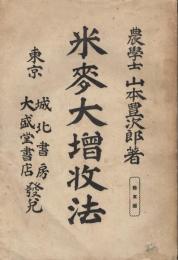 農學士 山本豊次郎著
米麥大增收法
東京 城北書房
大盛堂書店 發兌